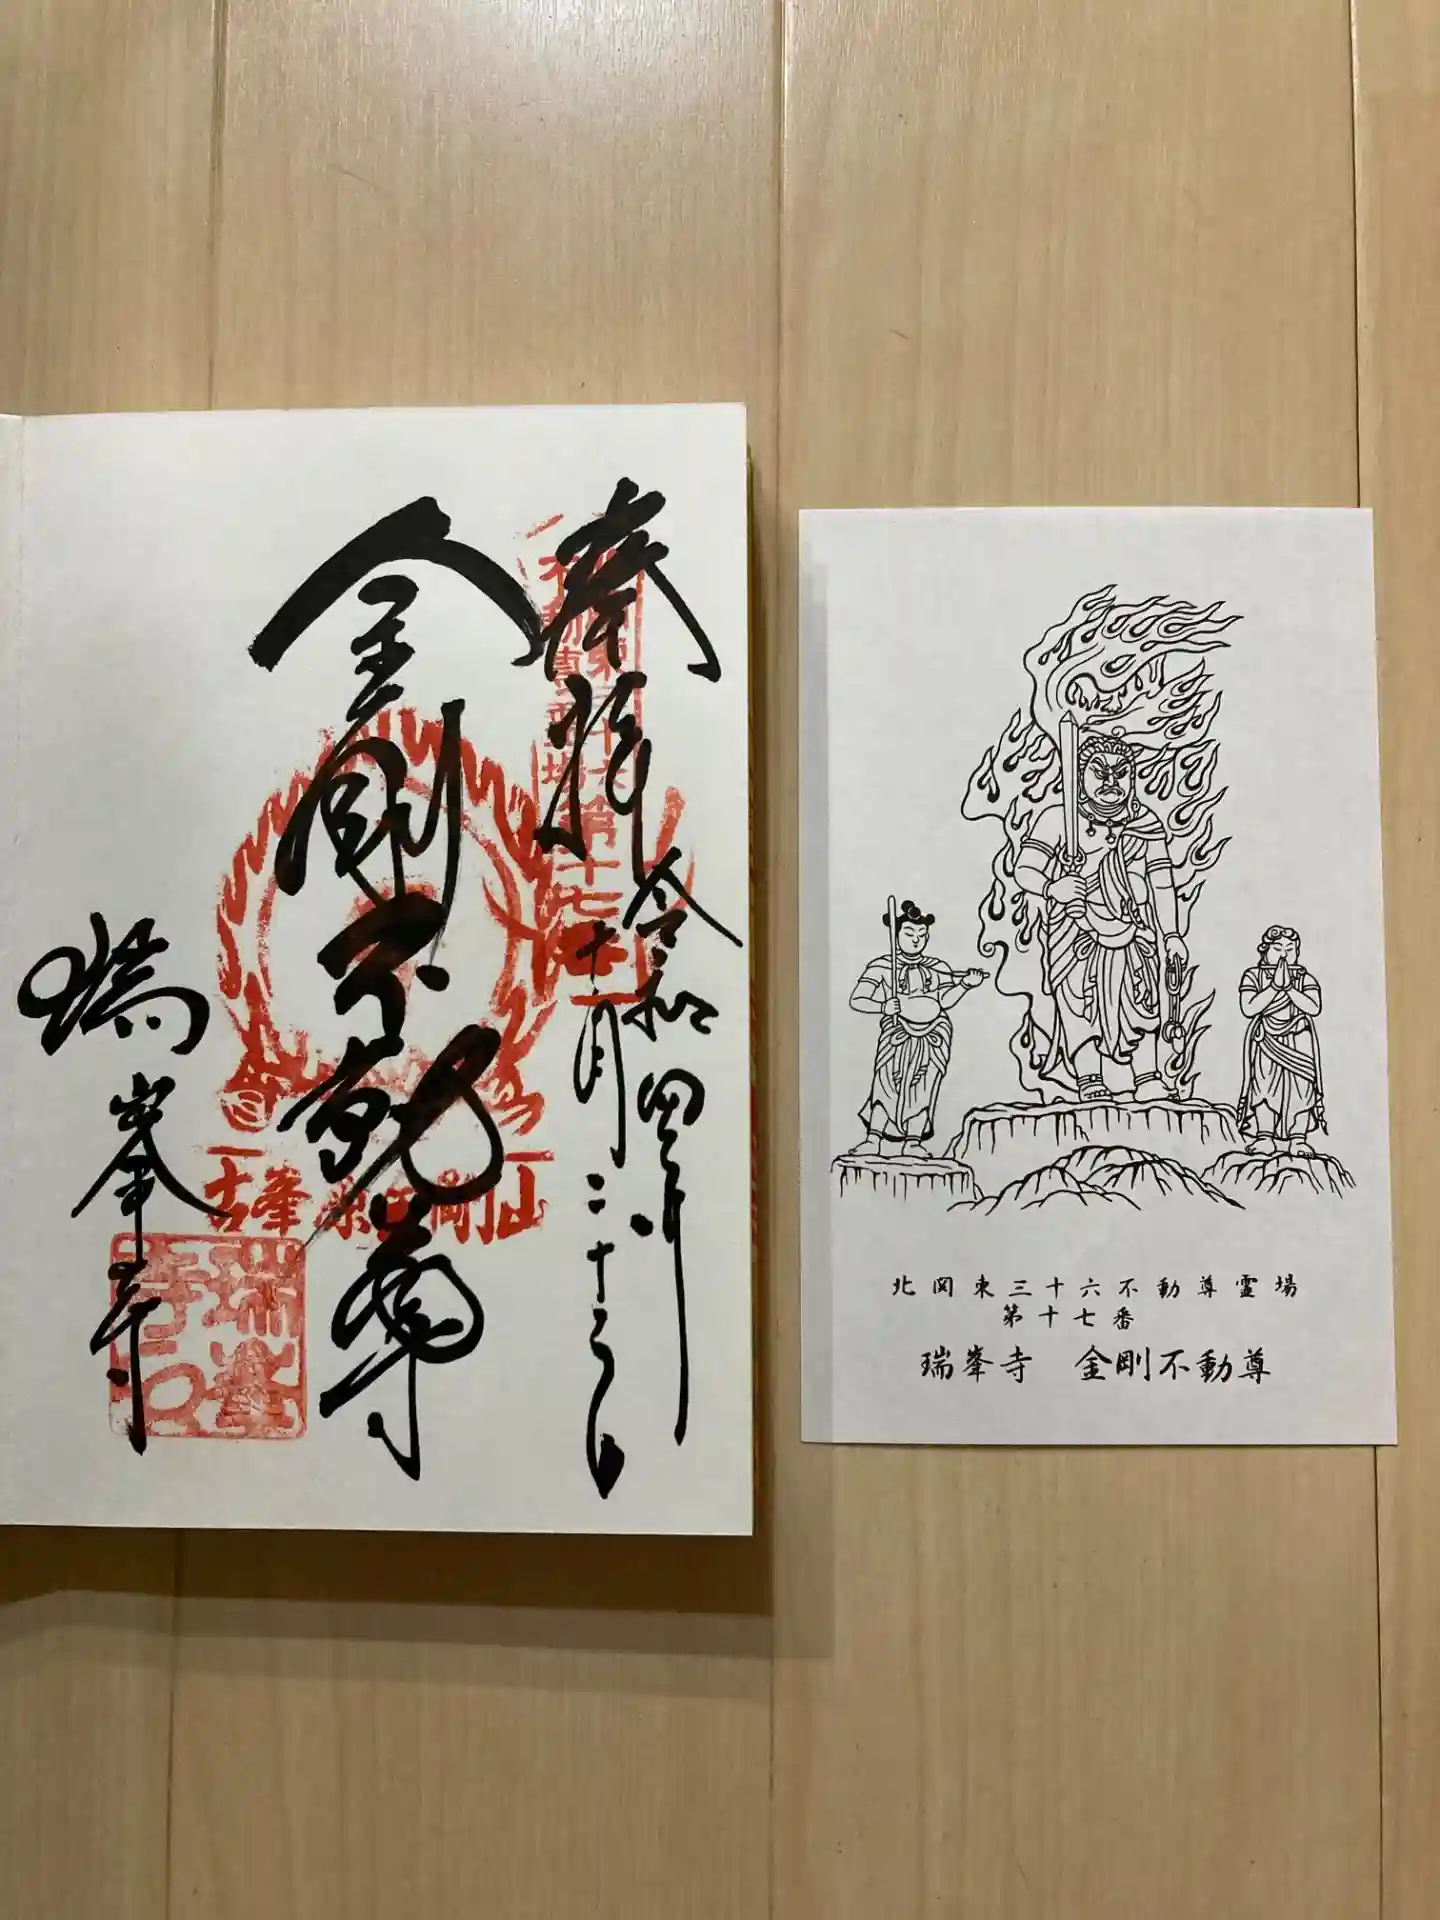 奉拝
令和四年
十月二十三日
金剛不動尊
瑞峯寺
第十七番
古峯原金剛山
瑞峯寺印
北関東三十六不動尊霊場
第十七番
瑞峯寺 金剛不動尊